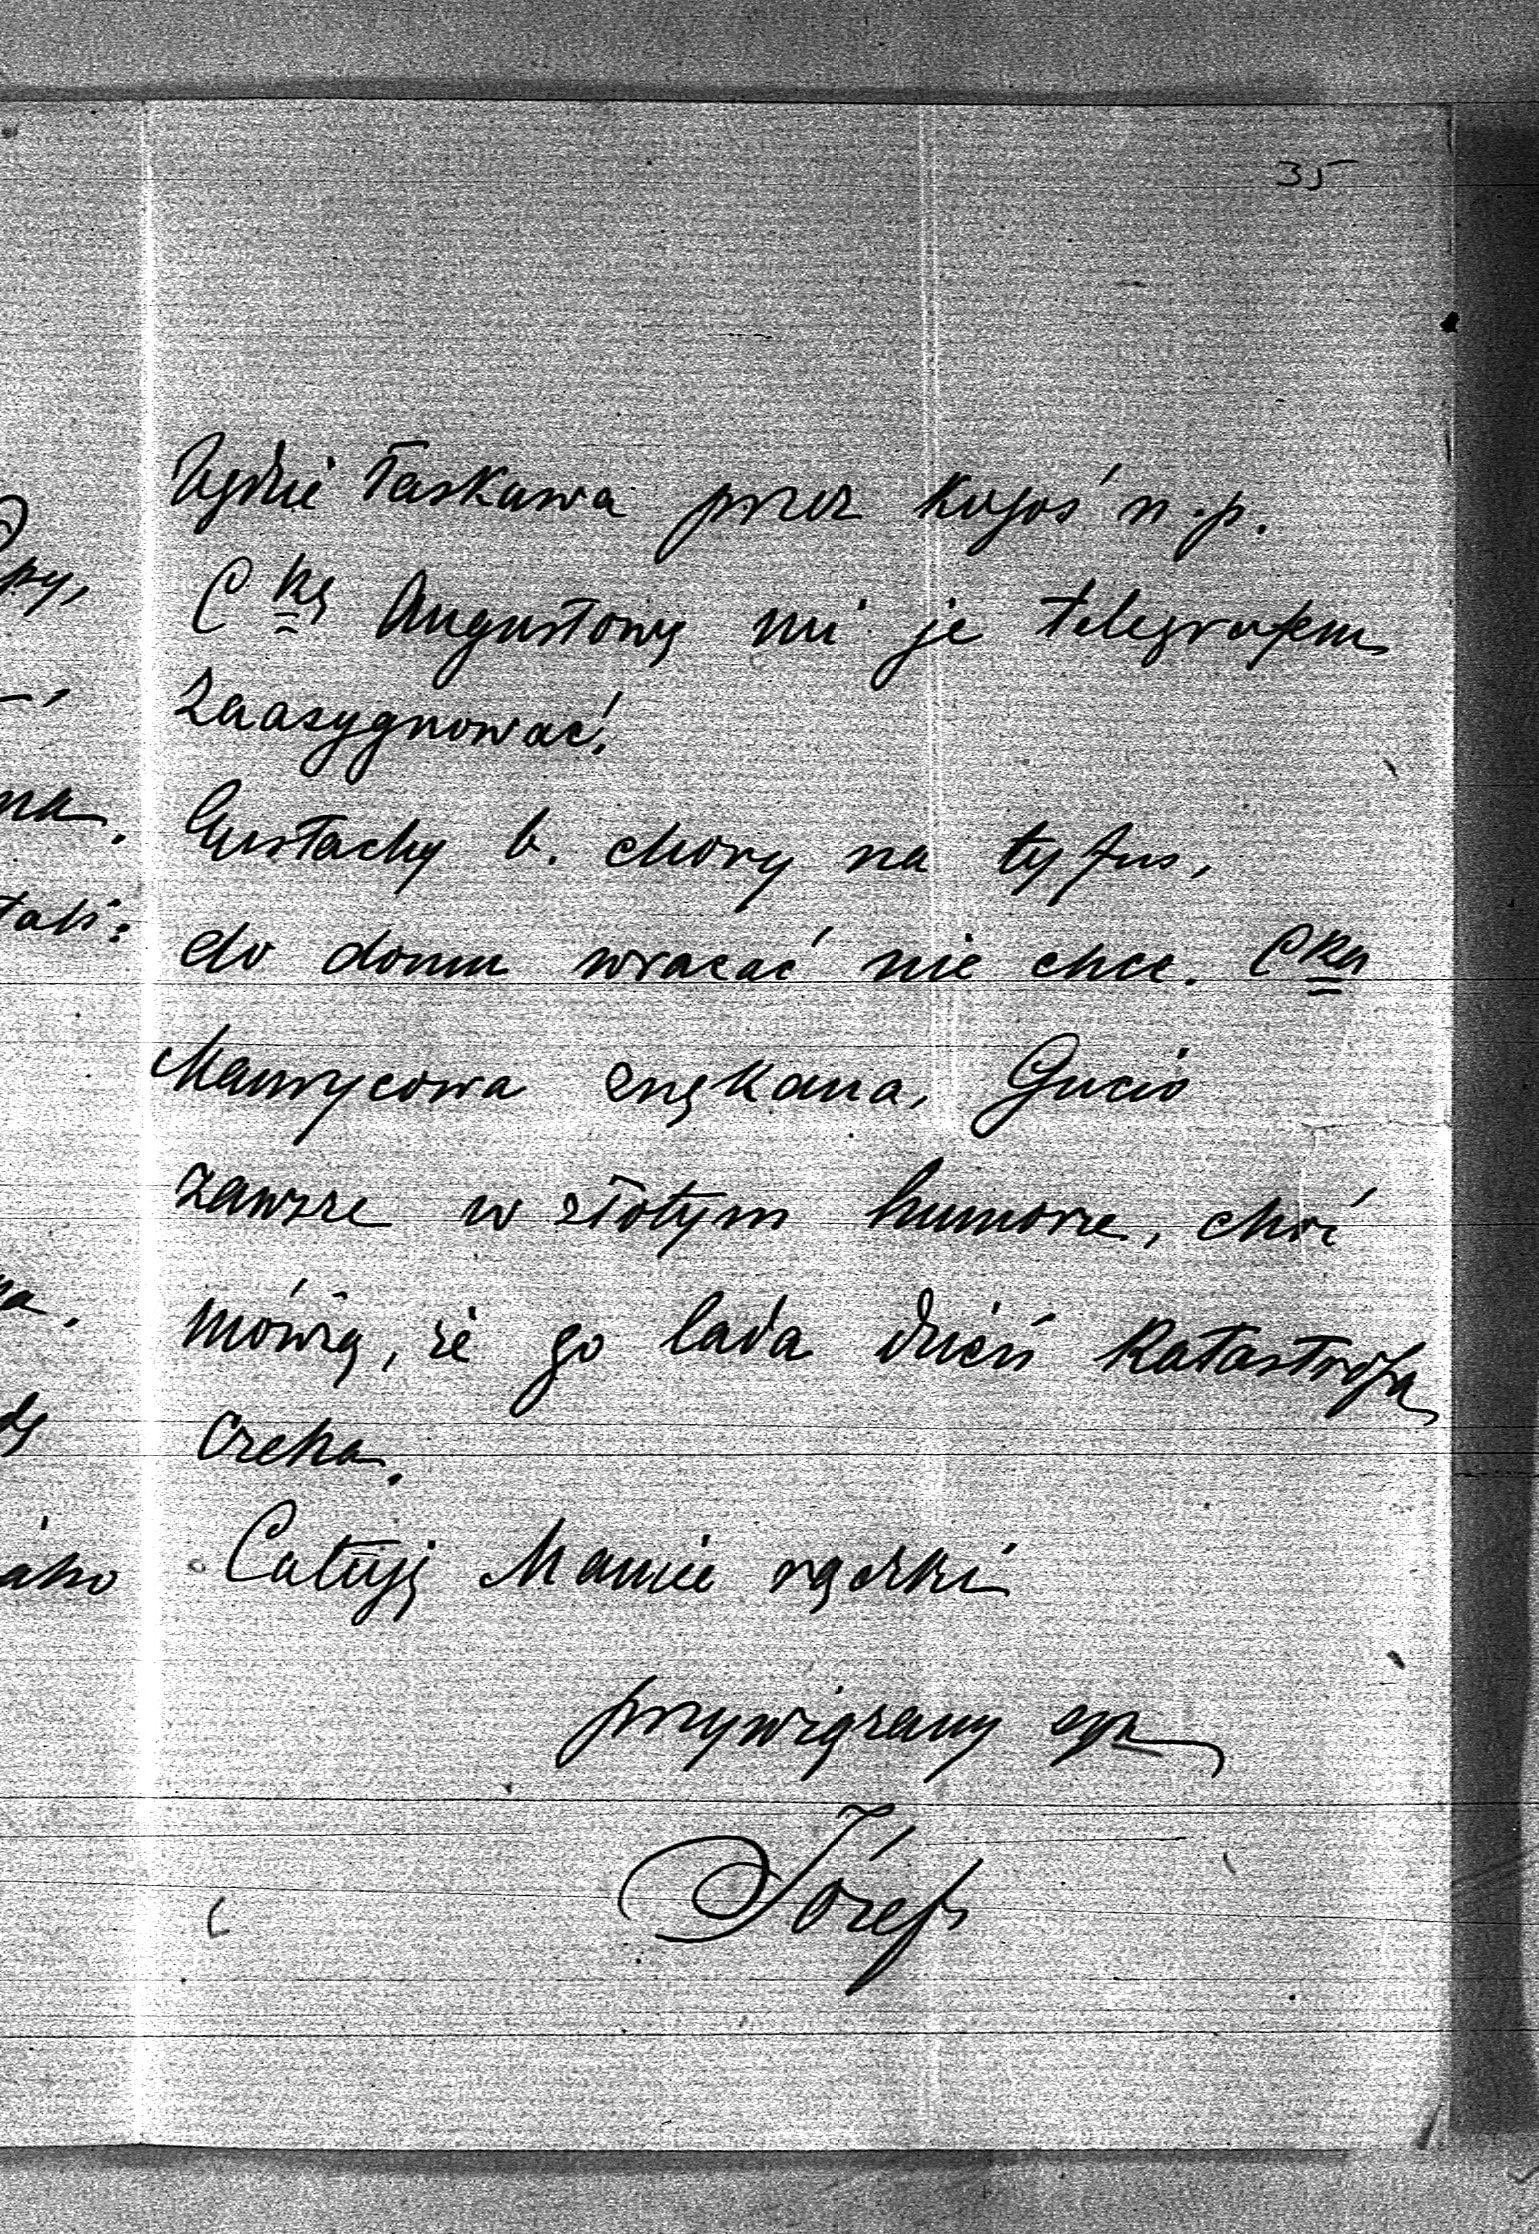 35
będzie łaskawa przez kogoś n.p.
Cką Augustową mi je telegrafem
zaasygnować!
Eustachy b. chory na tyfus,
do domu wracać nie chce. Cka
Maurycowa znękana, Gucio
zawsze w złotym humorze, choć
mówią, że go lada dzień katastrofa
czeka.
Całuję Mamie rączki
przywiązany syn
Józef